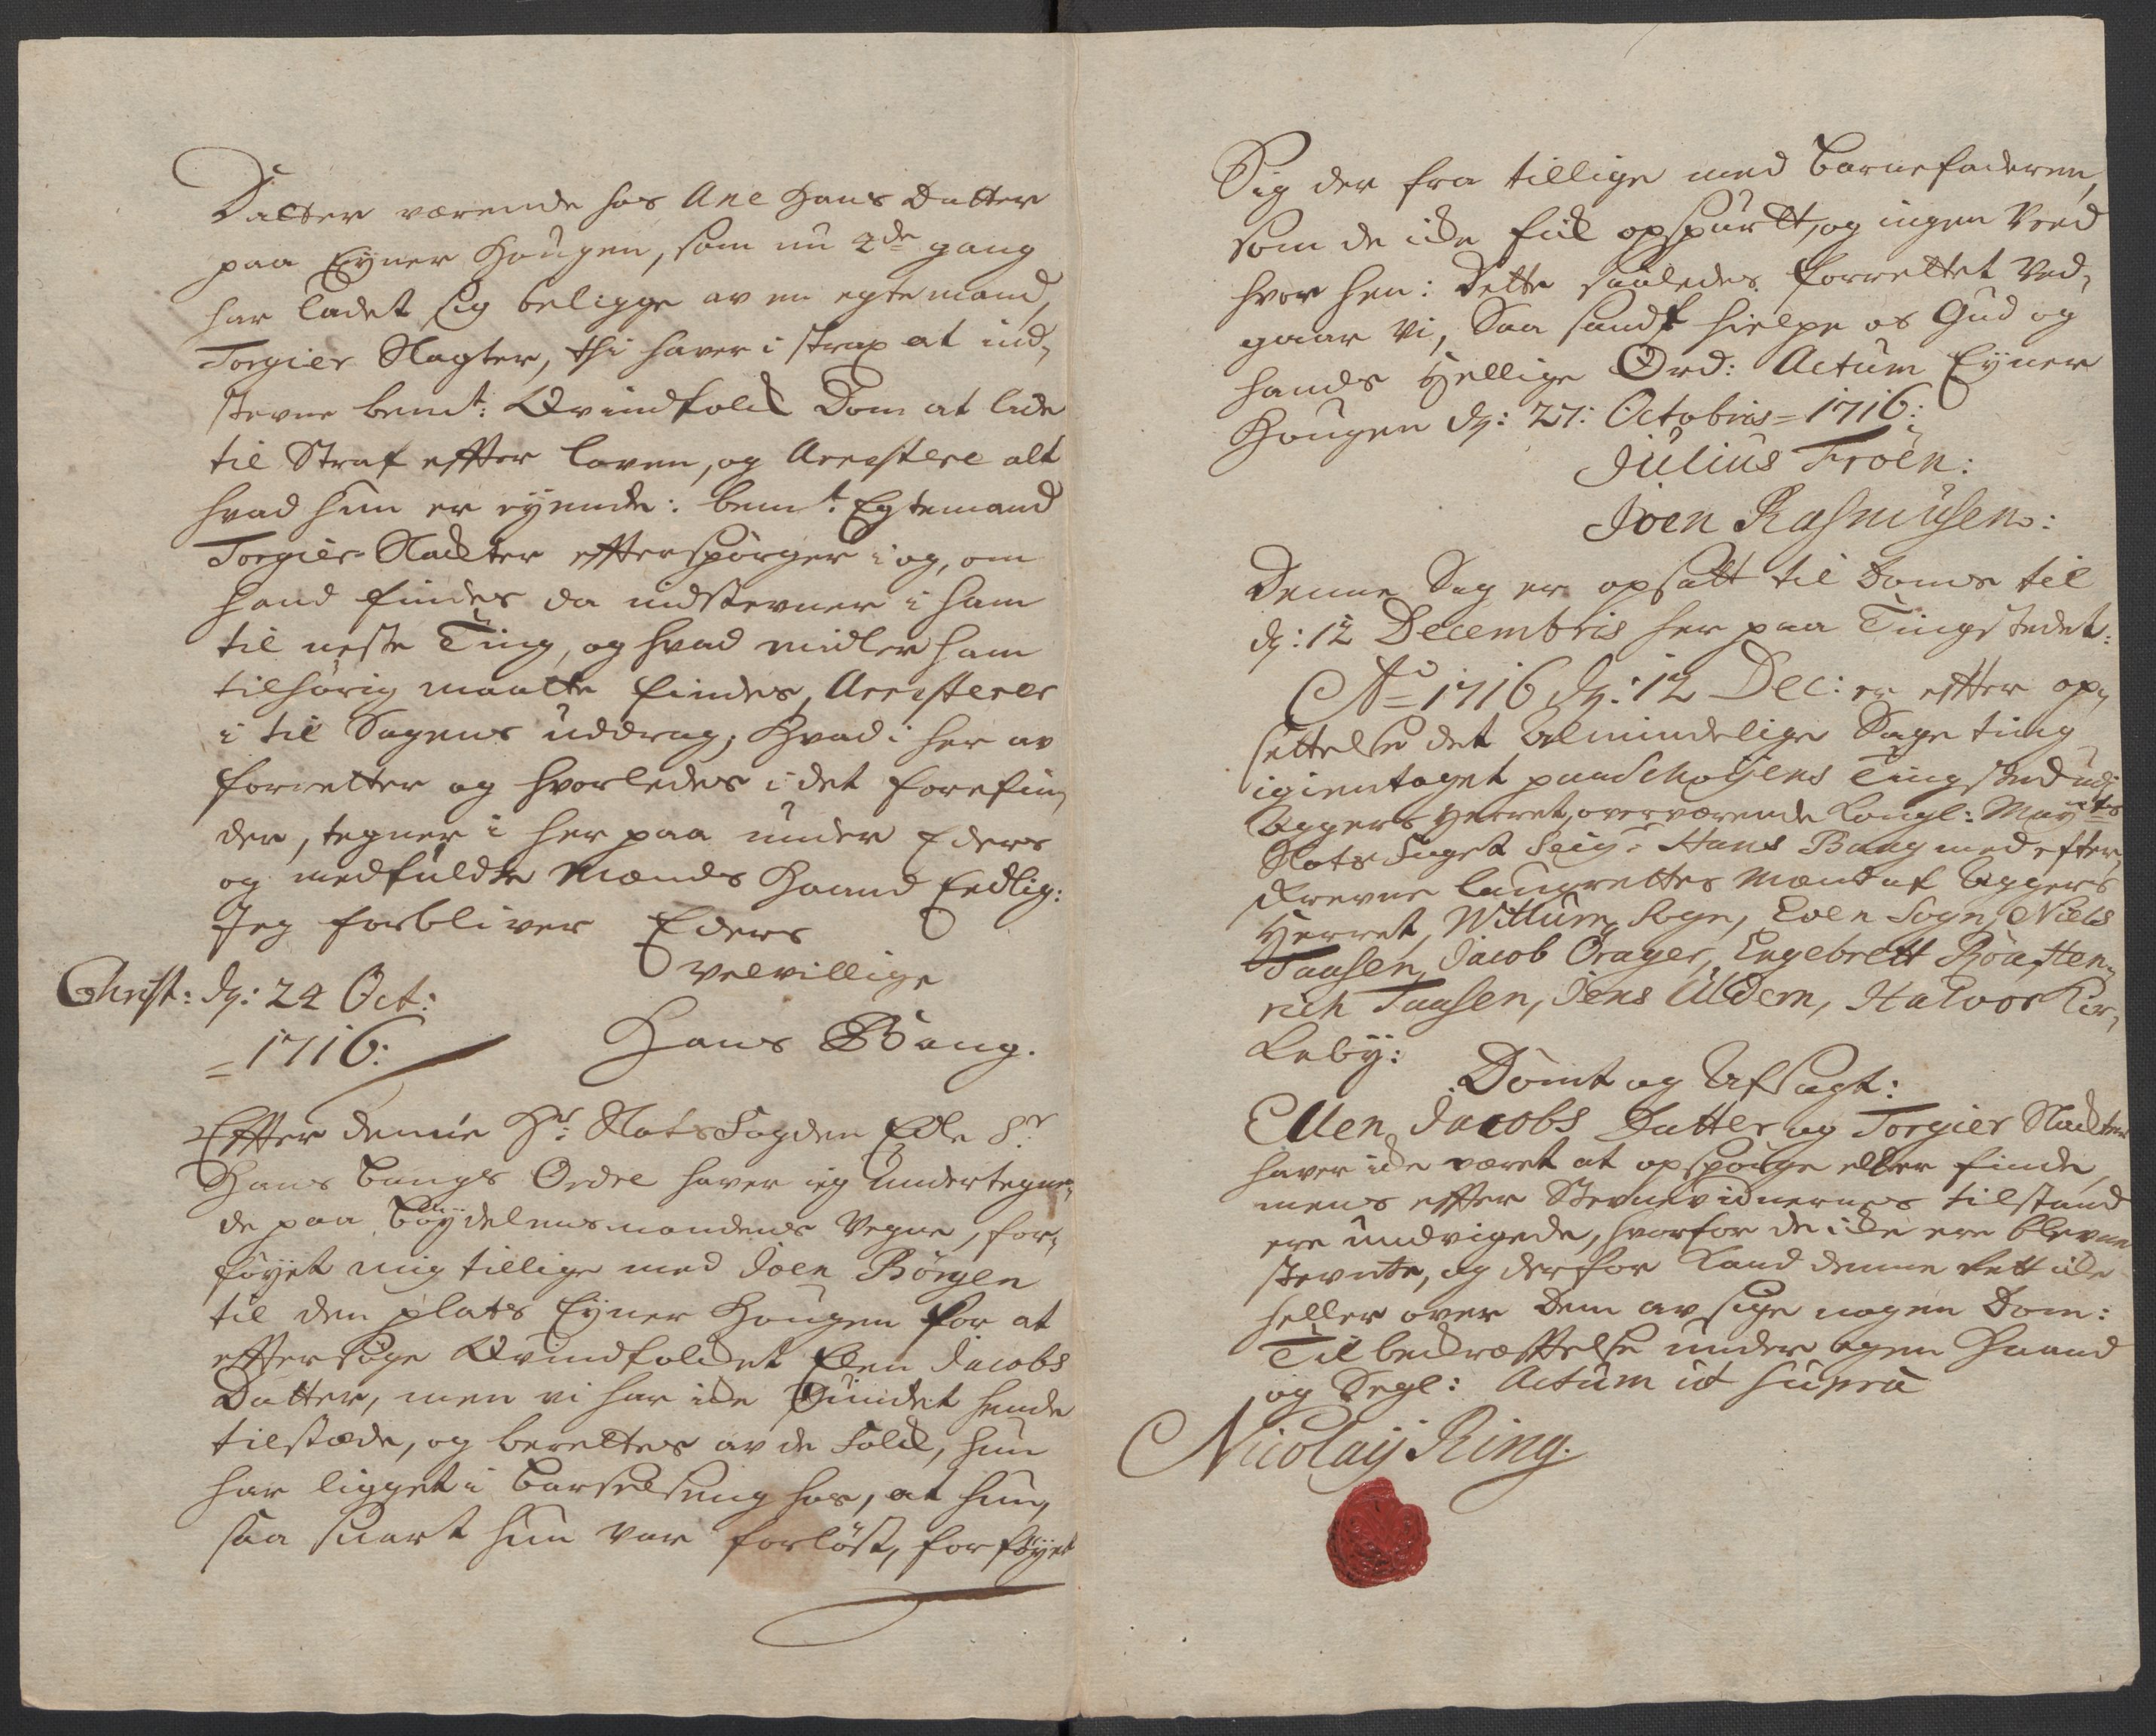 Datter værende hos Ane Hans Datter
paa Eyner Hougen, som nu 2de gang
har ladet sig beligge av en egtemand,
Torgier Slagter, thi haver i strax at ind-
stevne bemt: Qvindfolck Dom at lide
til Straf effter loven, og Arrestere alt
hvad hun er eyende: bemt. Egtemand
Torgier Slackter effterspörger i og, om
hand findes da indstevner i ham
til neste Ting, og hvad midler ham
tilhörig maatte findes, Arresterer
i til Sagens uddrag, Hvad i her av
forretter og hvorledes i det forefin-
der, tegner i her paa under Eders
og medfuldte Mænds Haand Eedlig:
Jeg forbliver Eders
velvillige
Christ: dn: 24 Oct:
=1716: Hans Bang.
Effter denne Hr: SlotsFogden Edle Sr.
Hans Bangs Ordre haver ieg undertegne-
de paa böydelensmandens Vegne, for-
föyet mig tillige med Joen Börgen
til den plats Eyner Hougen for at
eftersöge Qvindfolcket Elen Jacobs
Datter, men vi har icke fundet hende
tilstæde, og berettes av de Folck, hun
har ligget i barselseng hos, at hun,
saa snart hun var forlöst, forföyet
Sig der fra tillige med barnefaderen,
som de icke fick opspurtt, og ingen Veed
hvor hen: Dette saaledes forrettet Ved-
gaar vi, Saa sandt hielpe os Gud og
hands Hellige Ord: Actum Eyner
Hougen dn: 27: Octobris=1716:
Julius Froen:
Joen Rasmusen:
Denne Sag er opsatt til doms til
dn: 12 Decembris her paa Tingstedet:
Ao=1716 dn: 12 Dec: er effter op-
settelse det almindelige Sage ting
igientaget paa Schoyens Tingsted udj
Aggers Herret, overværende Kongl: Mayts
Slots Foget Seigr Hans Bang med efter-
skrevne laugrettes Mænd af Aggers
Herret, Willum Sogn, Even Sogn, Niels
Taasen, Jacob Orager, Engebrett Röa, Hen-
rich Taasen, Jens Uldern, Halvor Kir-
keby:
Dömt og Afsagt:
Ellen Jacobs Datter og Torgier Slackter
haver icke været at opspörge eller finde,
mens effter Stevnevidnernes tilstand
ere undvigede, hvorfor de icke ere blevne
stevnte, og derfor kand denne Rett icke
heller over dem avsige nogen Dom:
Til bekræfftelse under egen Haand
og Segl: Actum ut supra
Nicolaij Ring.